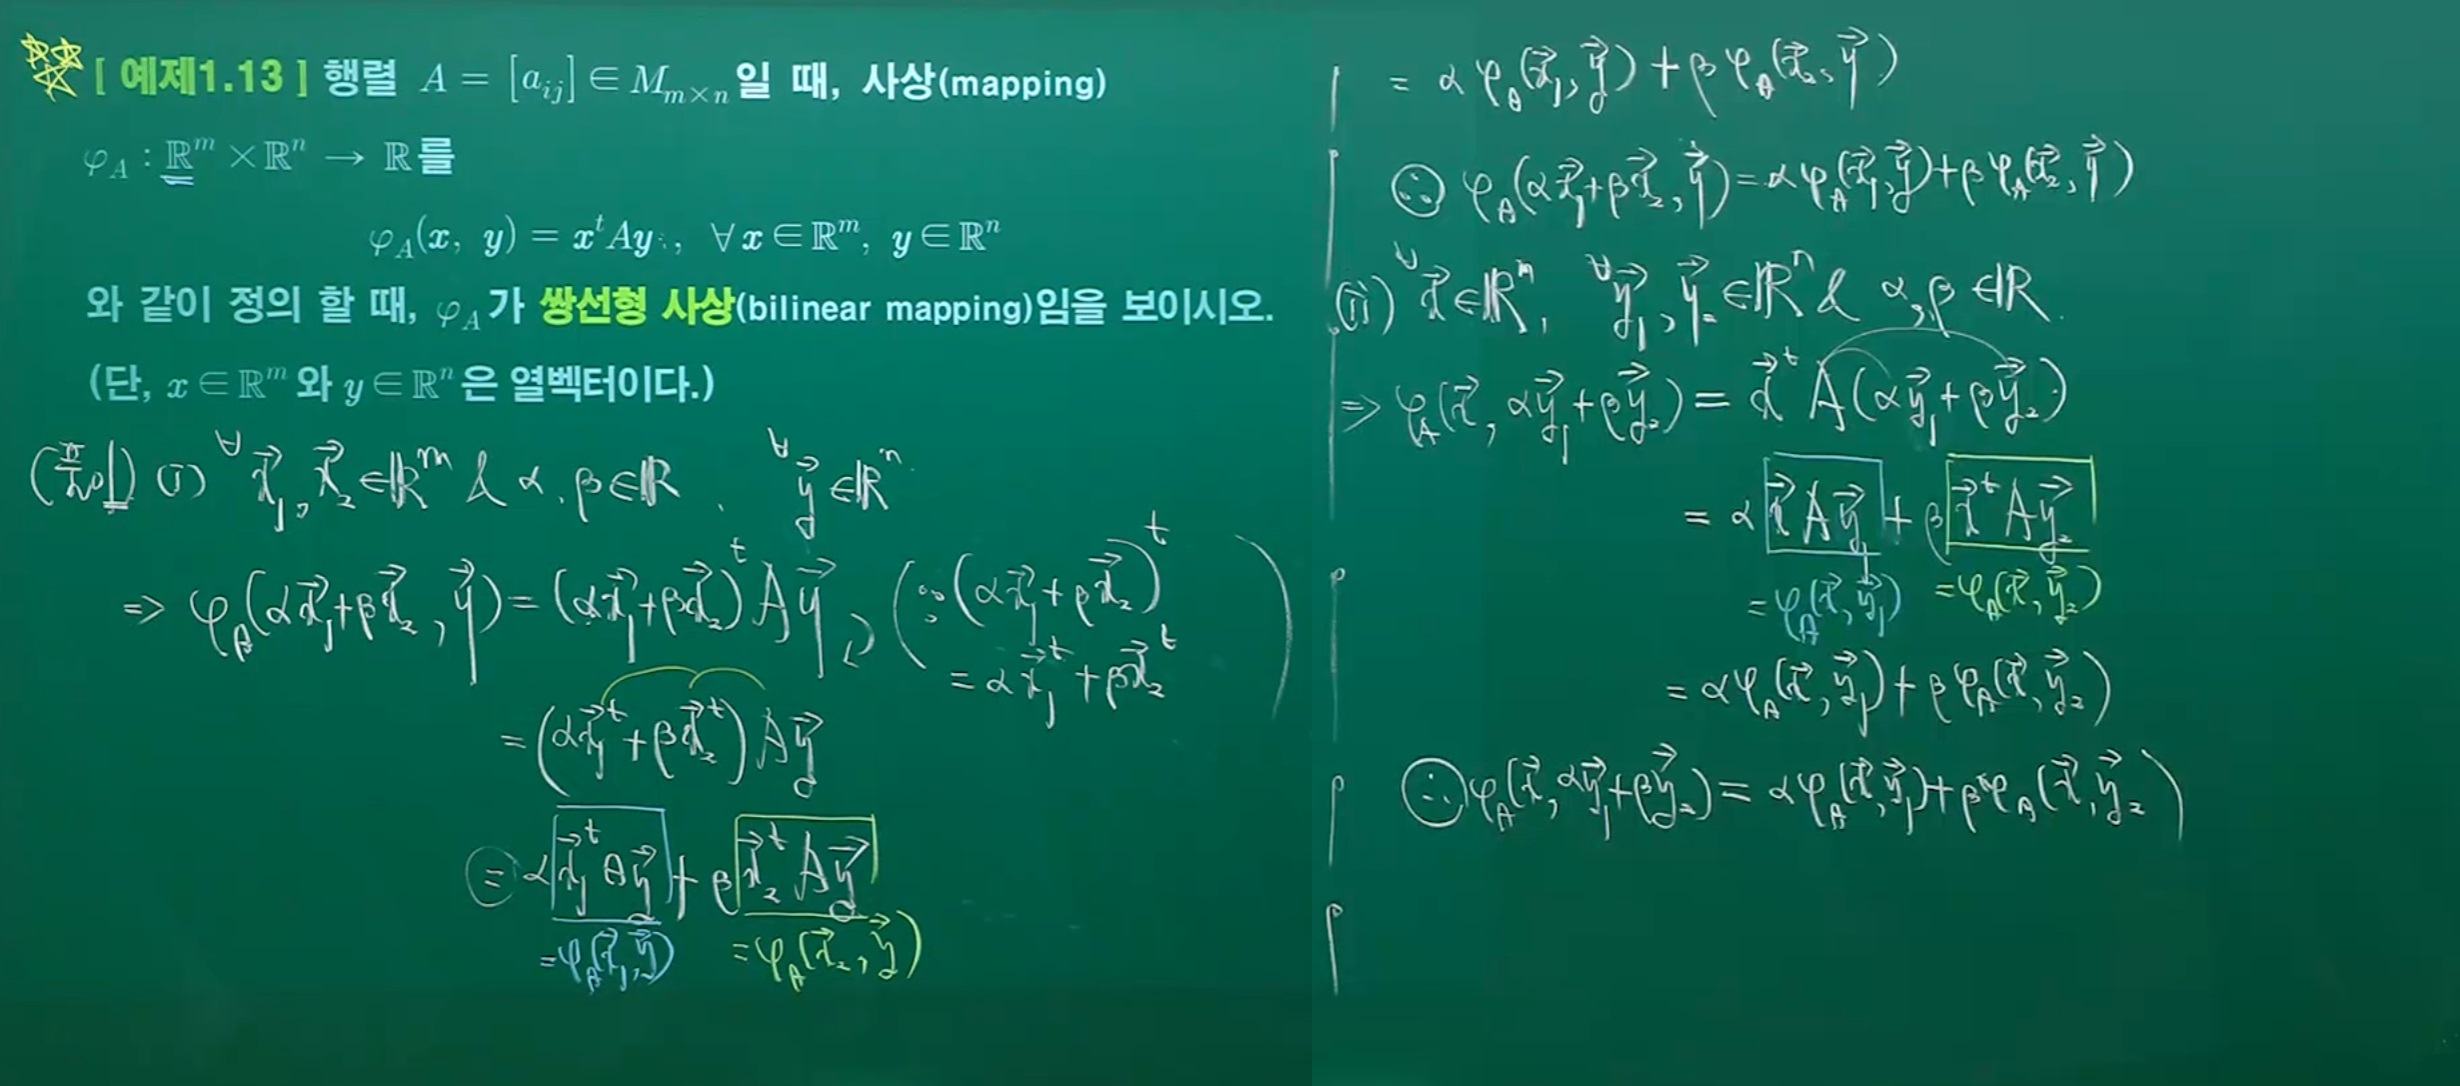 [ 예제1.13 ] 행렬 A = [a_{ij}] ∈ M_{m×n} 일 때, 사상(mapping)
φ_A : ℝ^m × ℝ^n → ℝ를
φ_A(x, y) = x^t Ay, ∀x∈ℝ^m, y∈ℝ^n
와 같이 정의 할 때, φ_A가 쌍선형 사상(bilinear mapping)임을 보이시오.
(단, x∈ℝ^m와 y∈ℝ^n은 열벡터이다.)
(풀이) (i) ∀x⃗₁, x⃗₂ ∈ ℝ^m & α, β ∈ ℝ, ∀y⃗ ∈ ℝ^n
⇒ φ_A(αx⃗₁+βx⃗₂, y⃗) = (αx⃗₁+βx⃗₂)^t A y⃗
(∵ (αx⃗₁+βx⃗₂)^t
= αx⃗₁^t + βx⃗₂^t )
= (αx⃗₁^t + βx⃗₂^t) A y⃗
= α x⃗₁^t A y⃗ + β x⃗₂^t A y⃗
= φ_A(x⃗₁, y⃗) = φ_A(x⃗₂, y⃗)
= α φ_A(x⃗₁, y⃗) + β φ_A(x⃗₂, y⃗)
∴ φ_A(αx⃗₁+βx⃗₂, y⃗) = αφ_A(x⃗₁, y⃗) + βφ_A(x⃗₂, y⃗)
(ii) ∀x⃗ ∈ ℝ^m, ∀y⃗₁, y⃗₂ ∈ ℝ^n & α, β ∈ ℝ.
⇒ φ_A(x⃗, αy⃗₁+βy⃗₂) = x⃗^t A(αy⃗₁+βy⃗₂)
= α x⃗ A y⃗₁ + β x⃗^t A y⃗₂
= φ_A(x⃗, y⃗₁) = φ_A(x⃗, y⃗₂)
= αφ_A(x⃗, y⃗₁) + βφ_A(x⃗, y⃗₂)
∴ φ_A(x⃗, αy⃗₁+βy⃗₂) = αφ_A(x⃗, y⃗₁) + βφ_A(x⃗, y⃗₂)